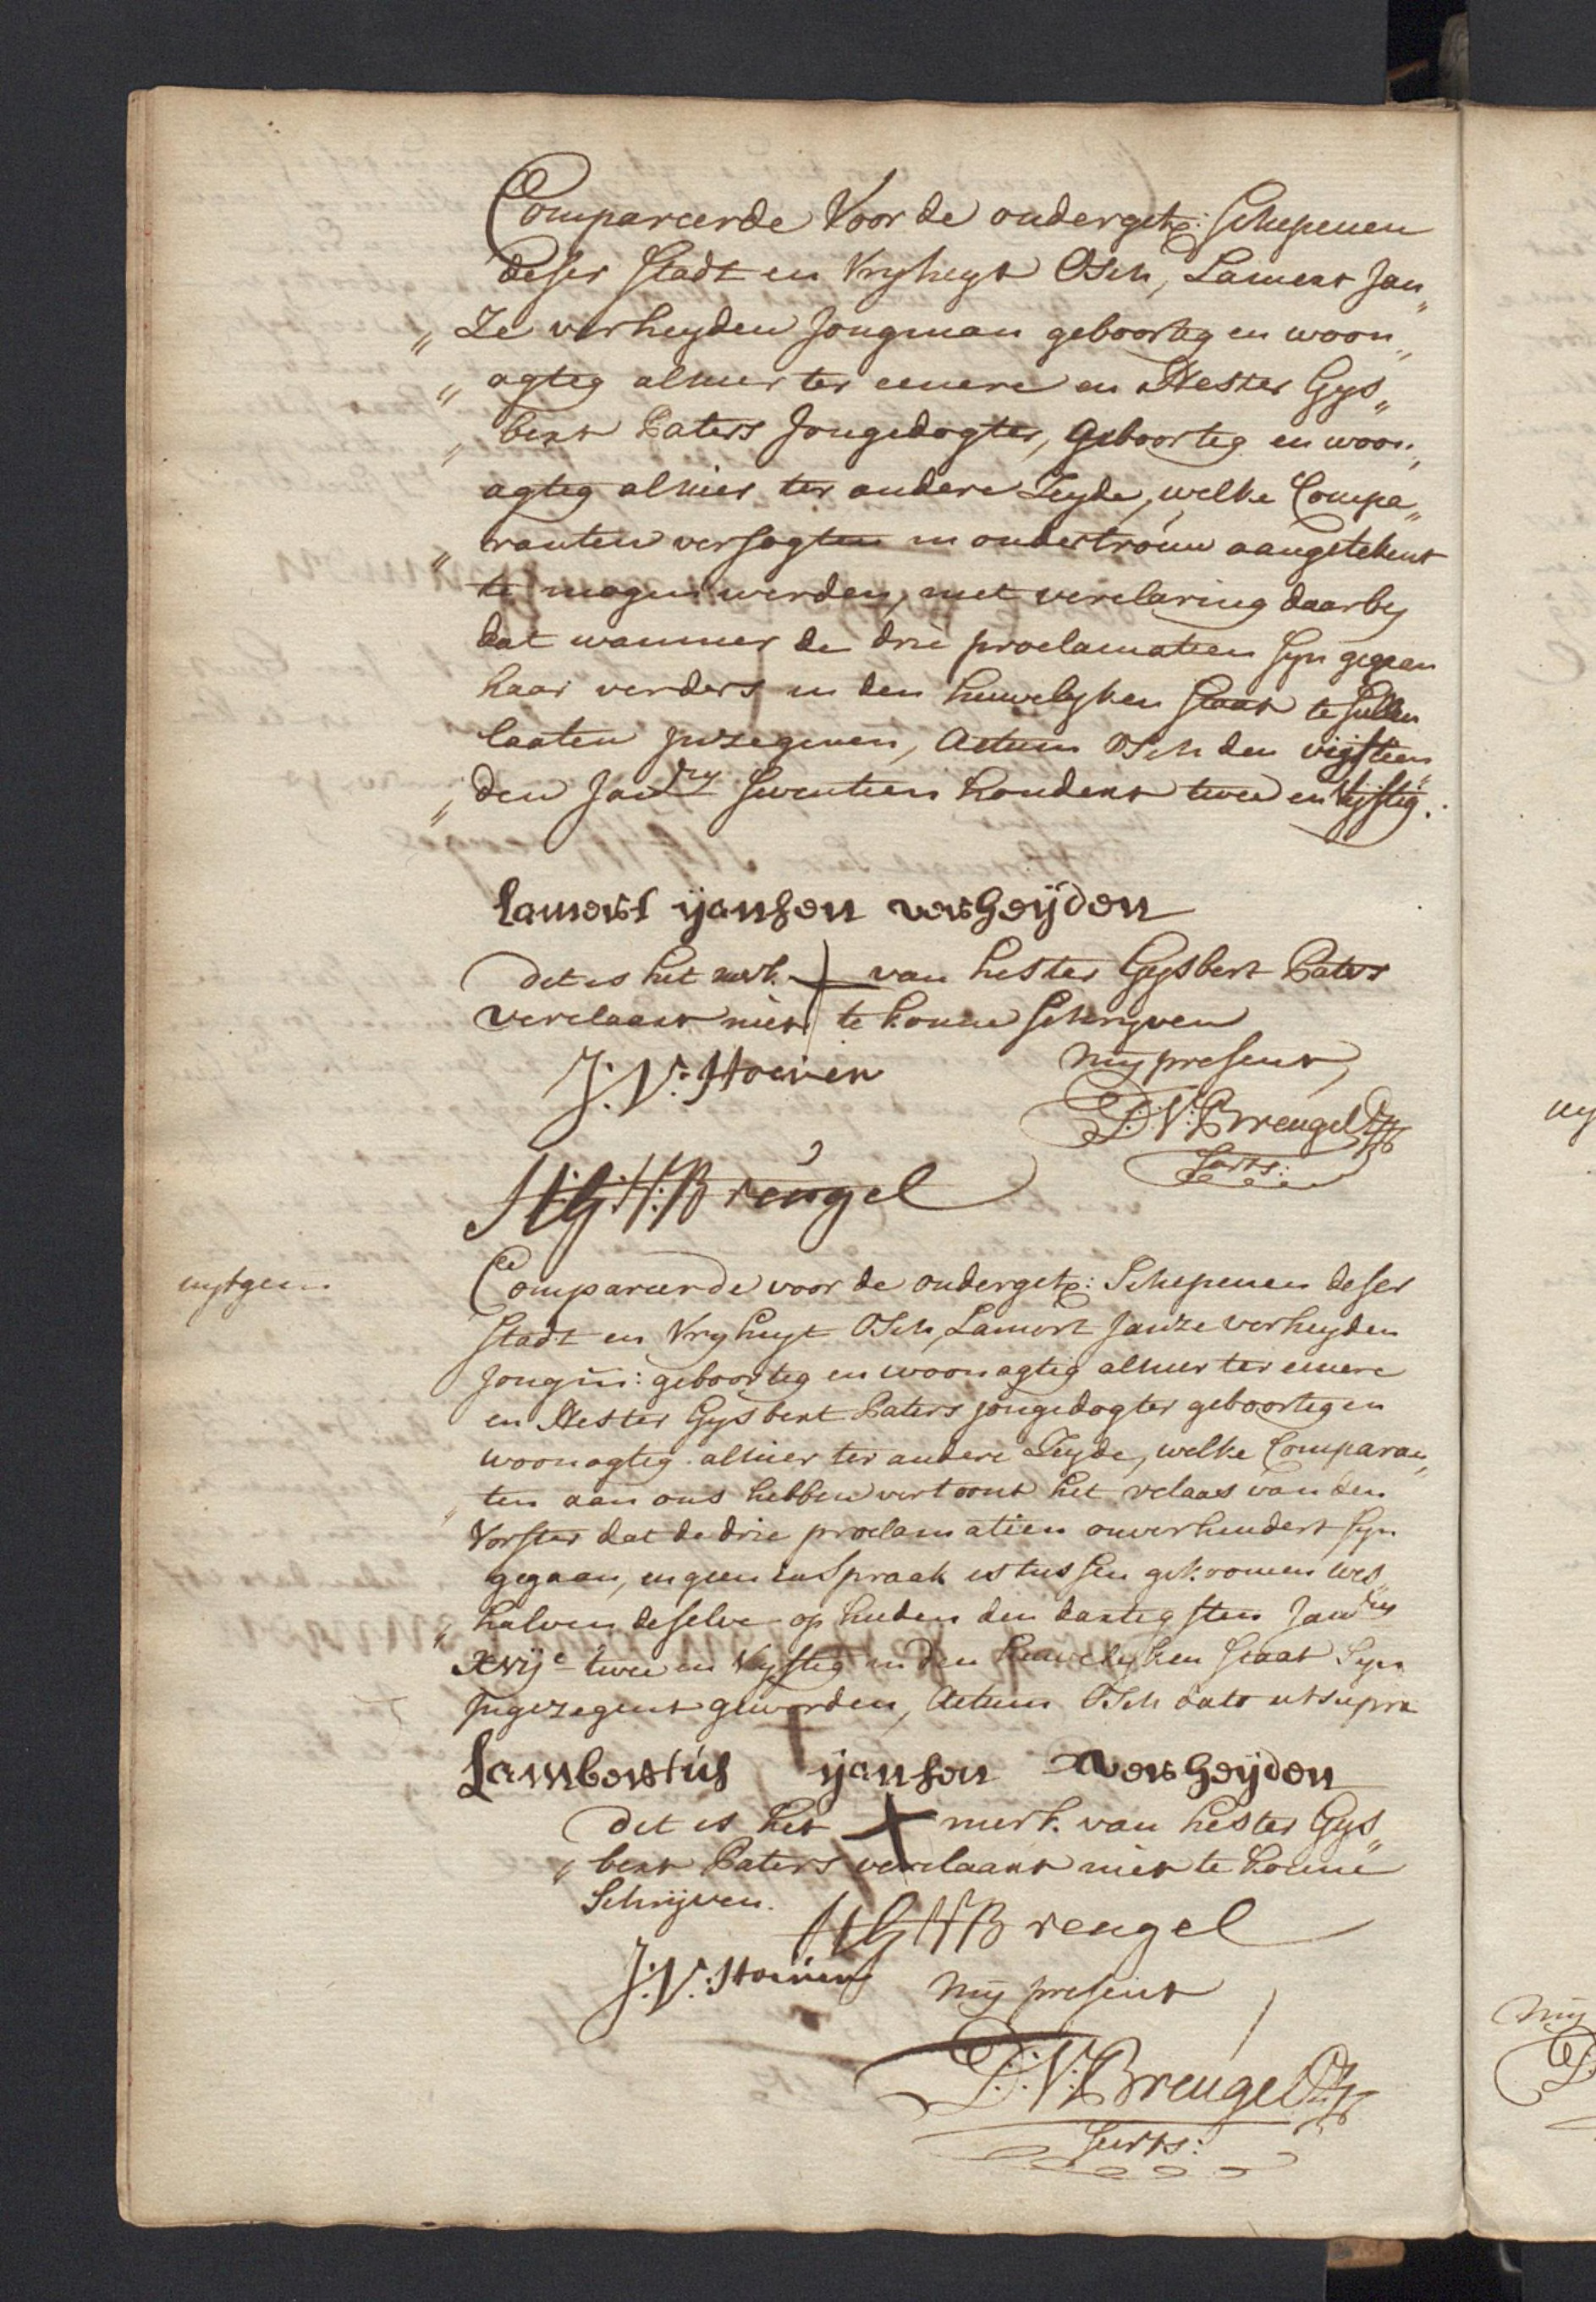 Compareerde Voor de ondergetn: Schepenen
deser Stadt en Vryheyt Osch, Lamert Jan„
„ Ze verheyden Jongman geboortig en woon„
„ agtig alhier ter eenere en Hester Gys„
„ bert Paters Jongedogter, geboortig en woon„
agtig alhier ter andere Zeyde, welke Compa„
„ ranten versogten in ondertrouw aangetekent
te mogen werden, met verclaring daarby
dat wanneer de drie proclamatien syn gegaen
haar verders in den huwelyken staat te sullen
laaten inzegenen, Actum Osch den vijftien„
„ den Janry seventien hondert twee en vijftig.
Lamert yansen verheijden
dit is het merk + van Hester Gysbert Paters
verclaart niet te konne schryven
J. V. Hoeven
mij present
D. V. Brengel
Secrts:
H G H Brengel
uytgeen
Compareerde voor de ondergetn: Schepenen deser
Stadt en Vryheyt Osch, Lamert Janze verheyden
Jongm: geboortig en woonagtig alhier ter eenere
en Hester Gysbert Paters jongedogter geboortig en
woonagtig alhier ter andere Zeyde, welke Comparan„
„ ten aan ons hebben vertoont het relaas van den
Vorster dat de drie proclamatien onverhindert syn
gegaan, en geen inspraak is tussen gekoomen wes„
„ halven deselve op heden den dertigsten Janry
Xvijc twee en vyftig in den huwelyken staat syn
ingezegent geworden, Actum Osch dato utsupra
Lambertus yansen verheijden
dit is het + merk van Hester Gys„
„ bert Paters verclaart niet te konne
Schrijven.
H G H Brengel
J. V. Hoeven
mij present
D. V. Brengel
Secrts:
uy
mij
D.